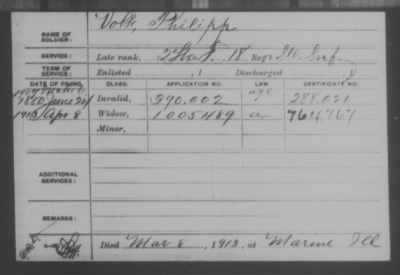 NAME OF SOLDIER: Volk, Philipp
SERVICE: Late rank, Reg't Ill. Inf
TERM OF SERVICE: Enlisted , 1 Discharged
DATE OF FILING. CLASS. APPLICATION NO. LAW. CERTIFICATE NO.
1907 age
1880 June 24 Invalid, 390,002 288,021
1913 Apr 8 Widow, 1005489 764767
Minor,
ADDITIONAL SERVICES:
REMARKS:
Died Mar 8 , 1913, at Marine Ill